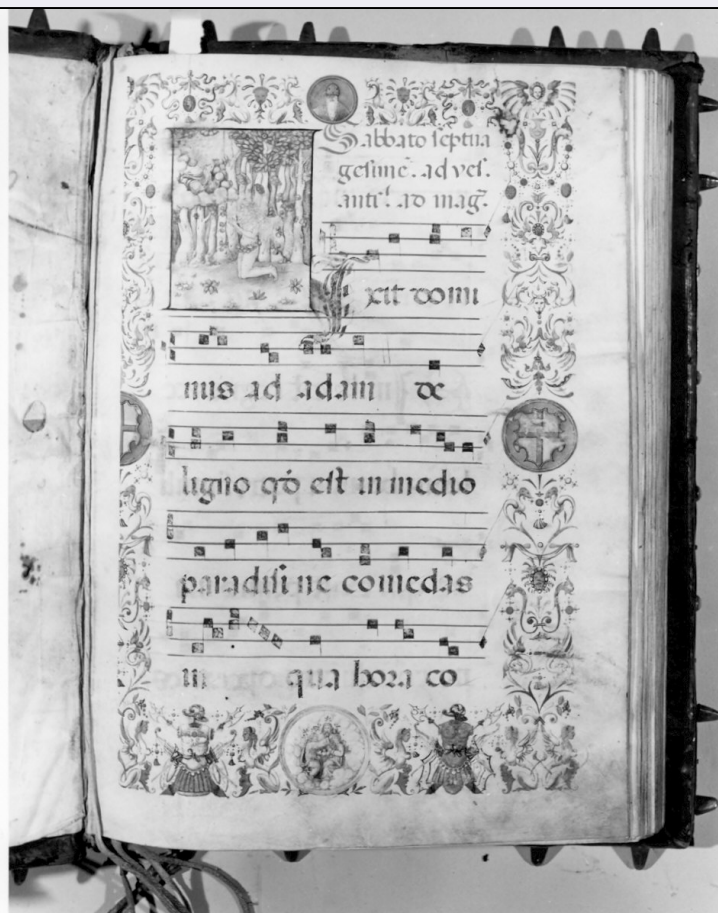 Sabbato septua
gesime. ad vesꝭ.
antiꝭ. ad mag̃.
xit domi
nus ad adam de
ligno qḋ est in medio
paradisi ne comedas
in qua hora co